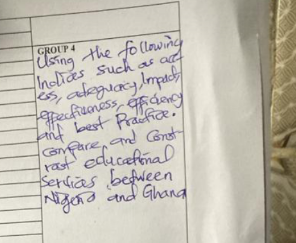 GROUP 4
Using the following
Indices such as acc
ess, adequacy, Impact,
effectiveness, efficiency
and best Practice.
Compare and Cont
rast educational
Services between
Nigeria and Ghana